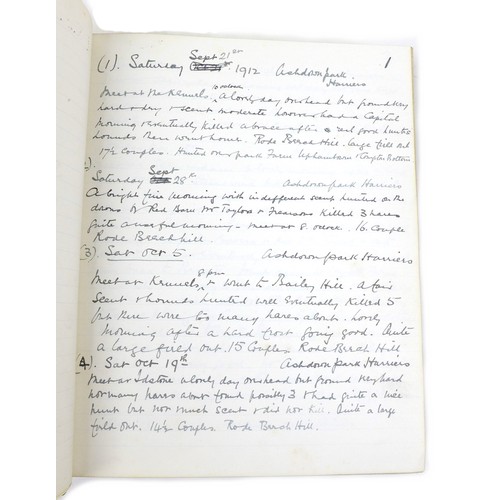 1
(1). Saturday Sept 21st 1912 Ashdown park Harriers
Meet at the Kennels 8 oclock, a lovely day overhead but ground very
hard & dry & scent moderate however had a Capital
morning & eventually killed a brace after a good hunt &
hounds then went home. Rode Birch Hill. large field out
17½ Couples. Hunted over park Farm Upham barn
Saturday Sept 28th Ashdown park Harriers
A bright fine morning with indifferent scent hunted on the
downs by Red Barn Mr Taylors & Killed 3 hares
quite a useful morning - meet at 8. oclock. 16. Couple
Rode Birch hill.
(3) Sat Oct 5. Ashdown park Harriers
Meet at Kennels & went to Bailey Hill. A fair
Scent & hounds hunted well eventually Killed 5
but there were too many hares about. Lovely
morning after a hard frost going good. Quite
a large field out. 15 Couples Rode Birch Hill
4). Sat Oct 19th Ashdown park Harriers
Meet at Idstone a lovely day overhead but ground very hard
not many hares about found possibly 3 & had quite a nice
hunt but not much scent & did not kill. Quite a large
field out. 14½ Couples Rode Birch Hill.